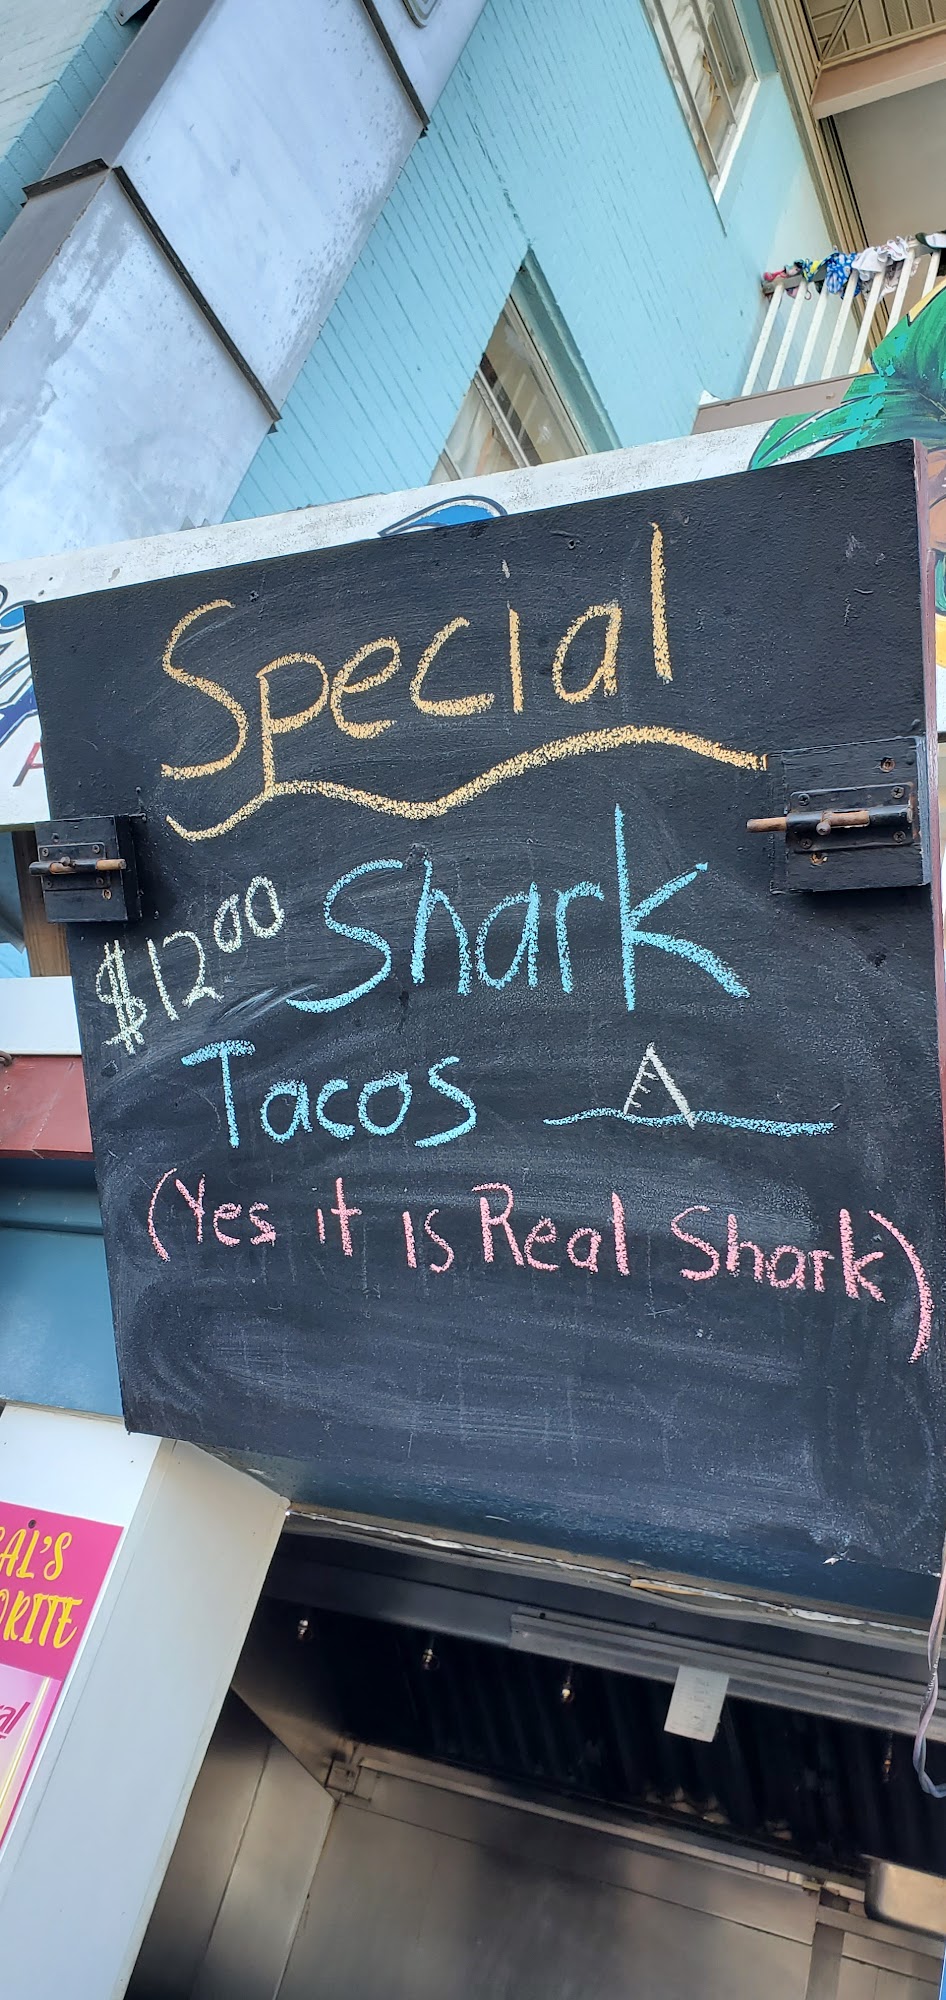 Special
$12.00 Shark
Tacos
(Yes it is Real Shark)
AL'S